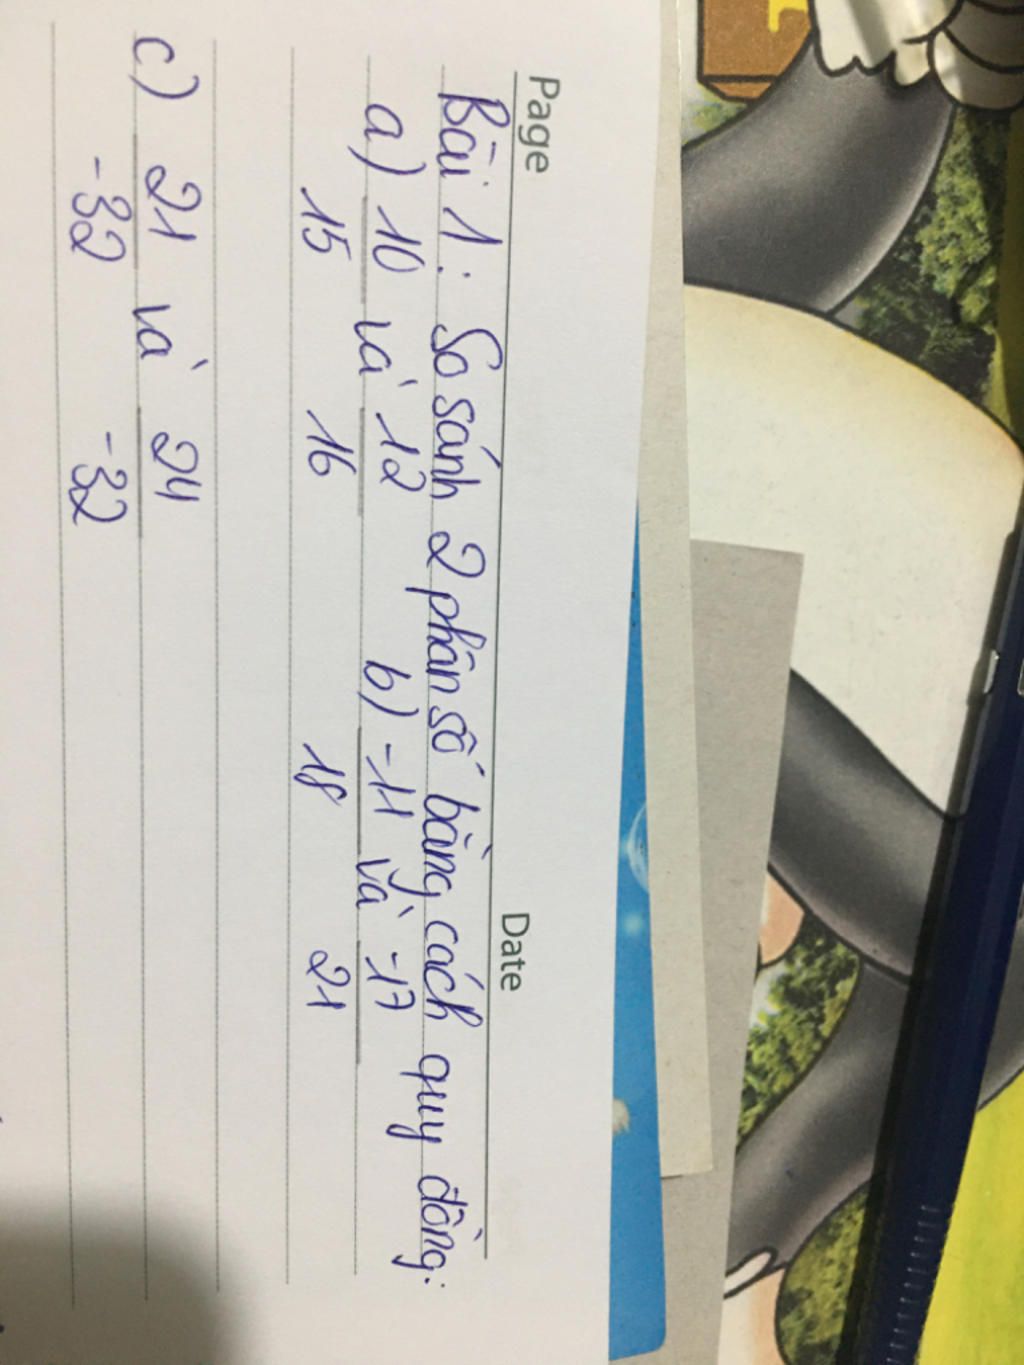 Page Date
Bài 1: So sánh 2 phân số bằng cách quy đồng:
a) 10 và 12 b) -11 và -17
15 16 18 21
c) 21 và 24
-32 -32